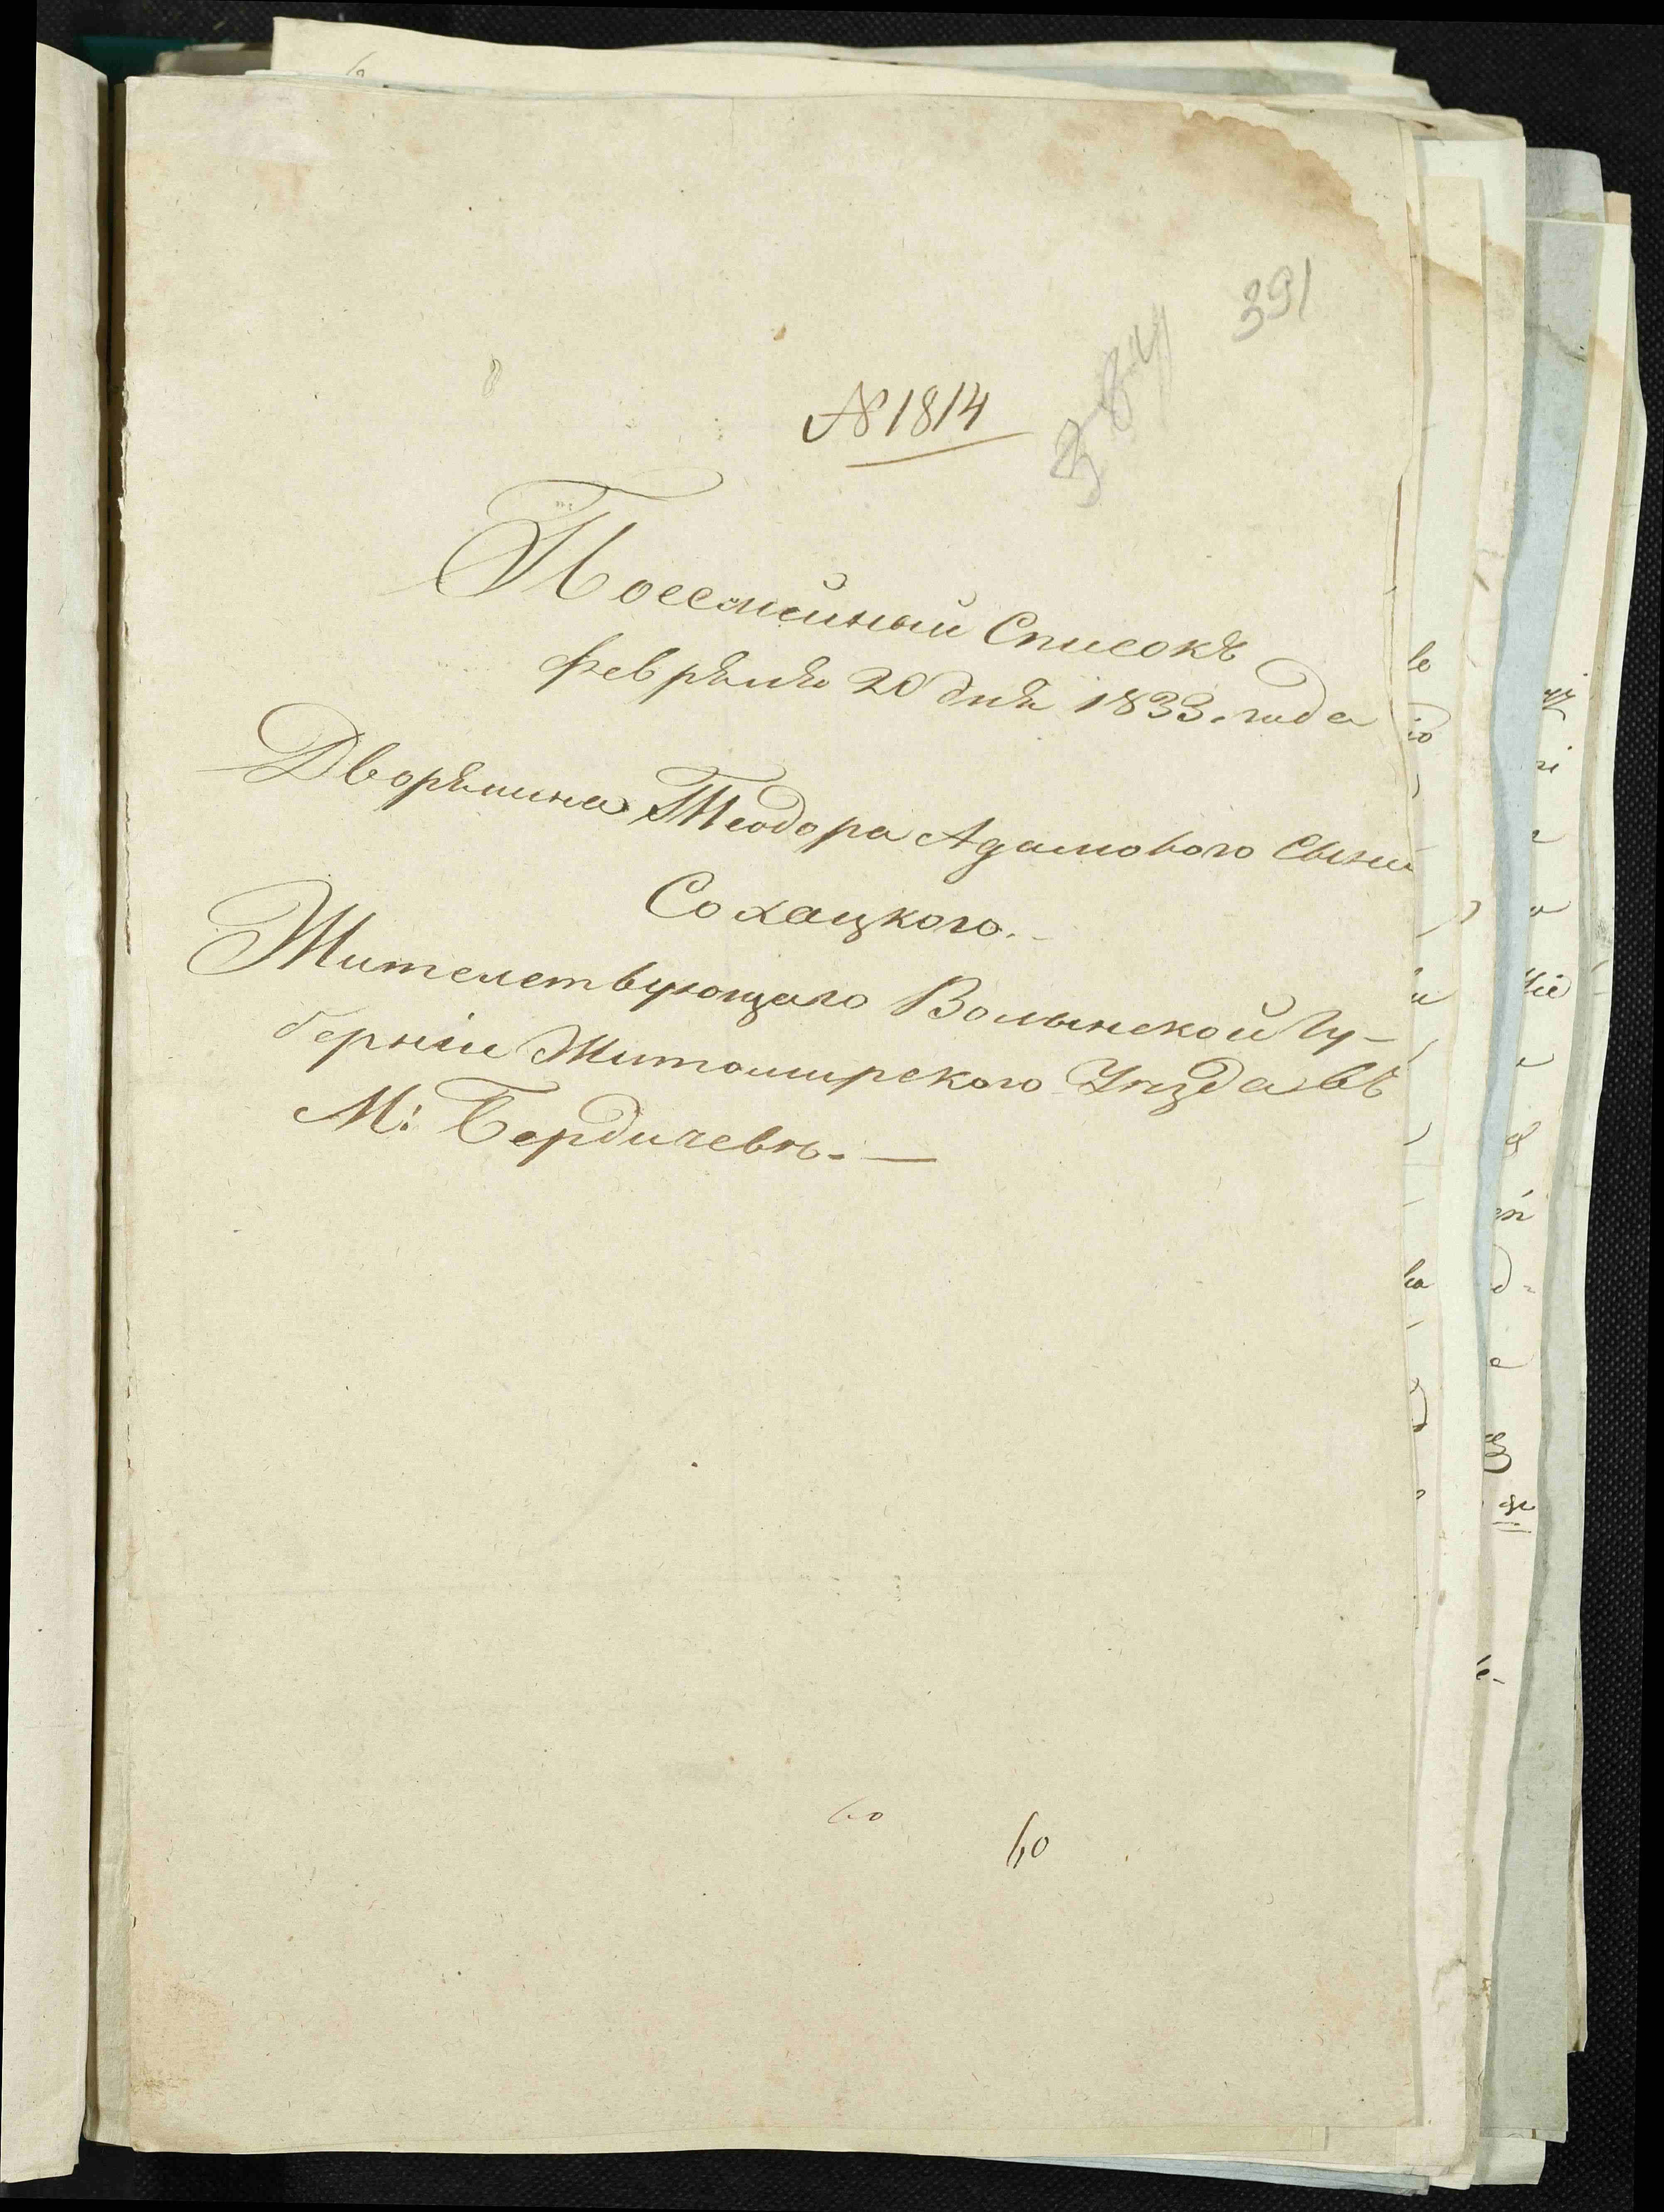 391
384
№ 1814
Посемейный Списокъ
февраля 20 дня 1833. года
Дворянина Теодора Адамового Сына
Сохацкого.
Жителствующаго Волынской Гу-
берніи Житомирского Уѣзда въ
М: Бердичевѣ. —
60
60